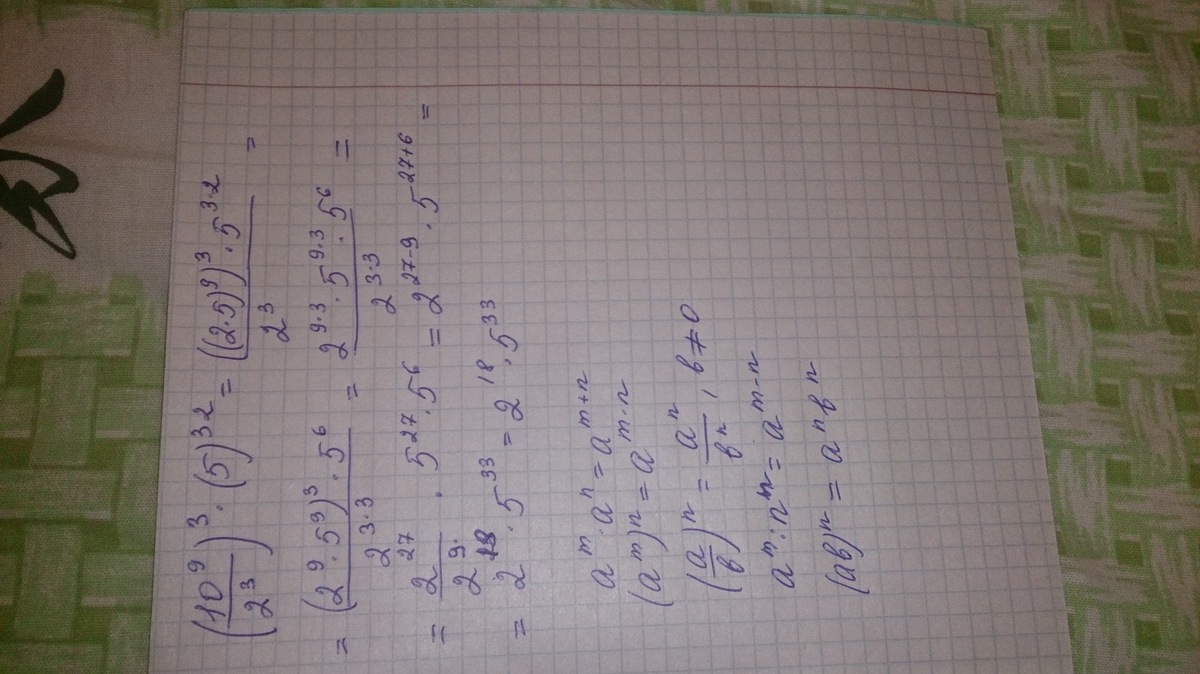 (10⁹/2³)³ · (5)³² = ((2·5)⁹)³ · 5³·² / 2³ =
= (2⁹ · 5⁹)³ · 5⁶ / 2³·³ = 2⁹·³ · 5⁹·³ · 5⁶ / 2³·³ =
= 2²⁷ / 2⁹ · 5²⁷ · 5⁶ = 2²⁷⁻⁹ · 5²⁷⁺⁶ =
= 2¹⁸ · 5³³ = 2¹⁸ · 5³³
aᵐ · aⁿ = aᵐ⁺ⁿ
(aᵐ)ⁿ = aᵐ·ⁿ
(a/b)ⁿ = aⁿ/bⁿ, b ≠ 0
aᵐ : nⁿ = aᵐ⁻ⁿ
(ab)ⁿ = aⁿbⁿ